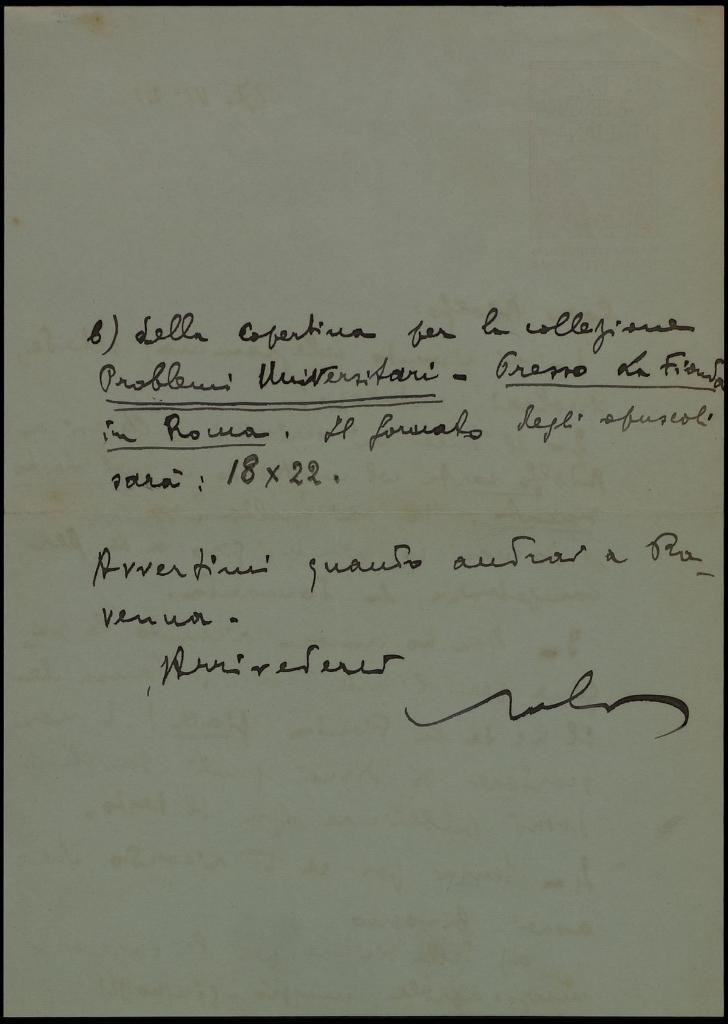 b) della copertina per la collezione
Problemi Universitari – Presso La Fionda
in Roma. Il formato degli opuscoli
sarà: 18 x 22.
Avvertimi quando andrai a Ra-
venna –
Arrivederci